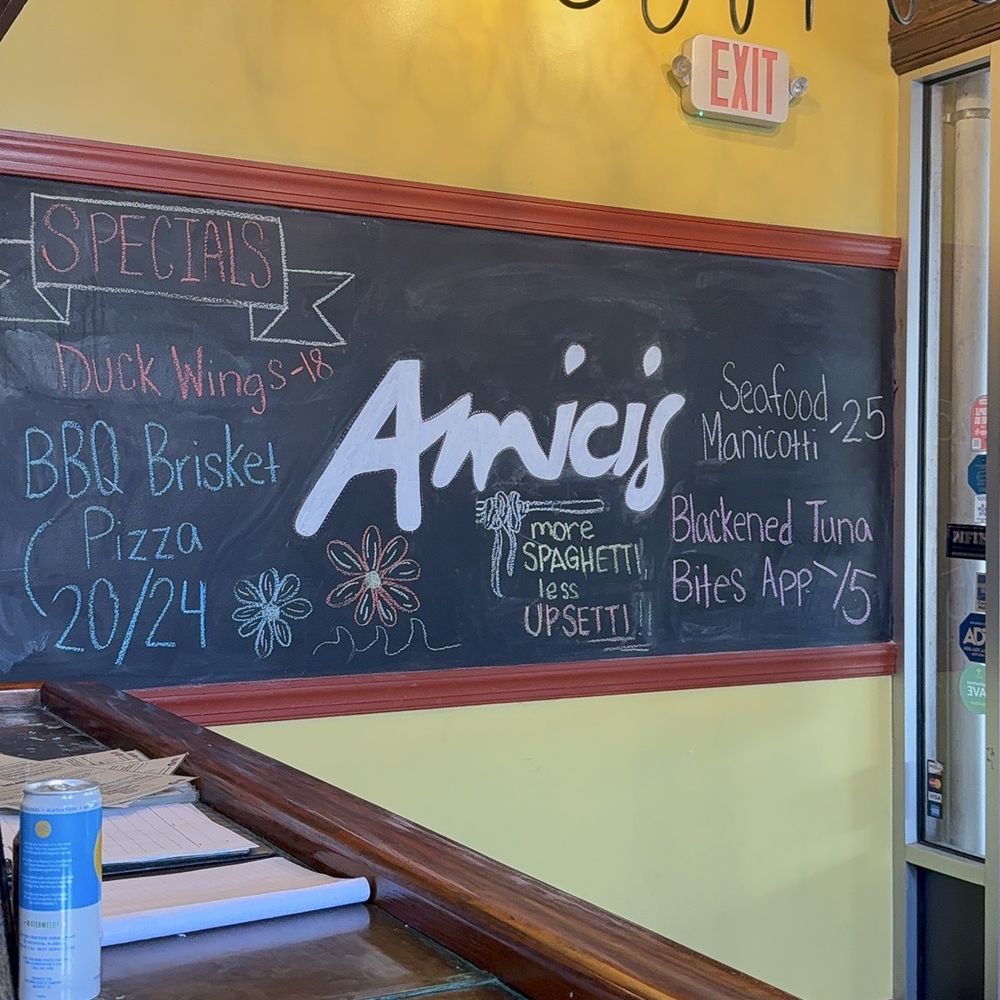 EXIT
SPECIALS
Duck Wings-18
BBQ Brisket
Pizza
20/24
Amicis
more
SPAGHETTI
less
UPSETTI
Seafood
Manicotti -25
Blackened Tuna
Bites App -15
VISA